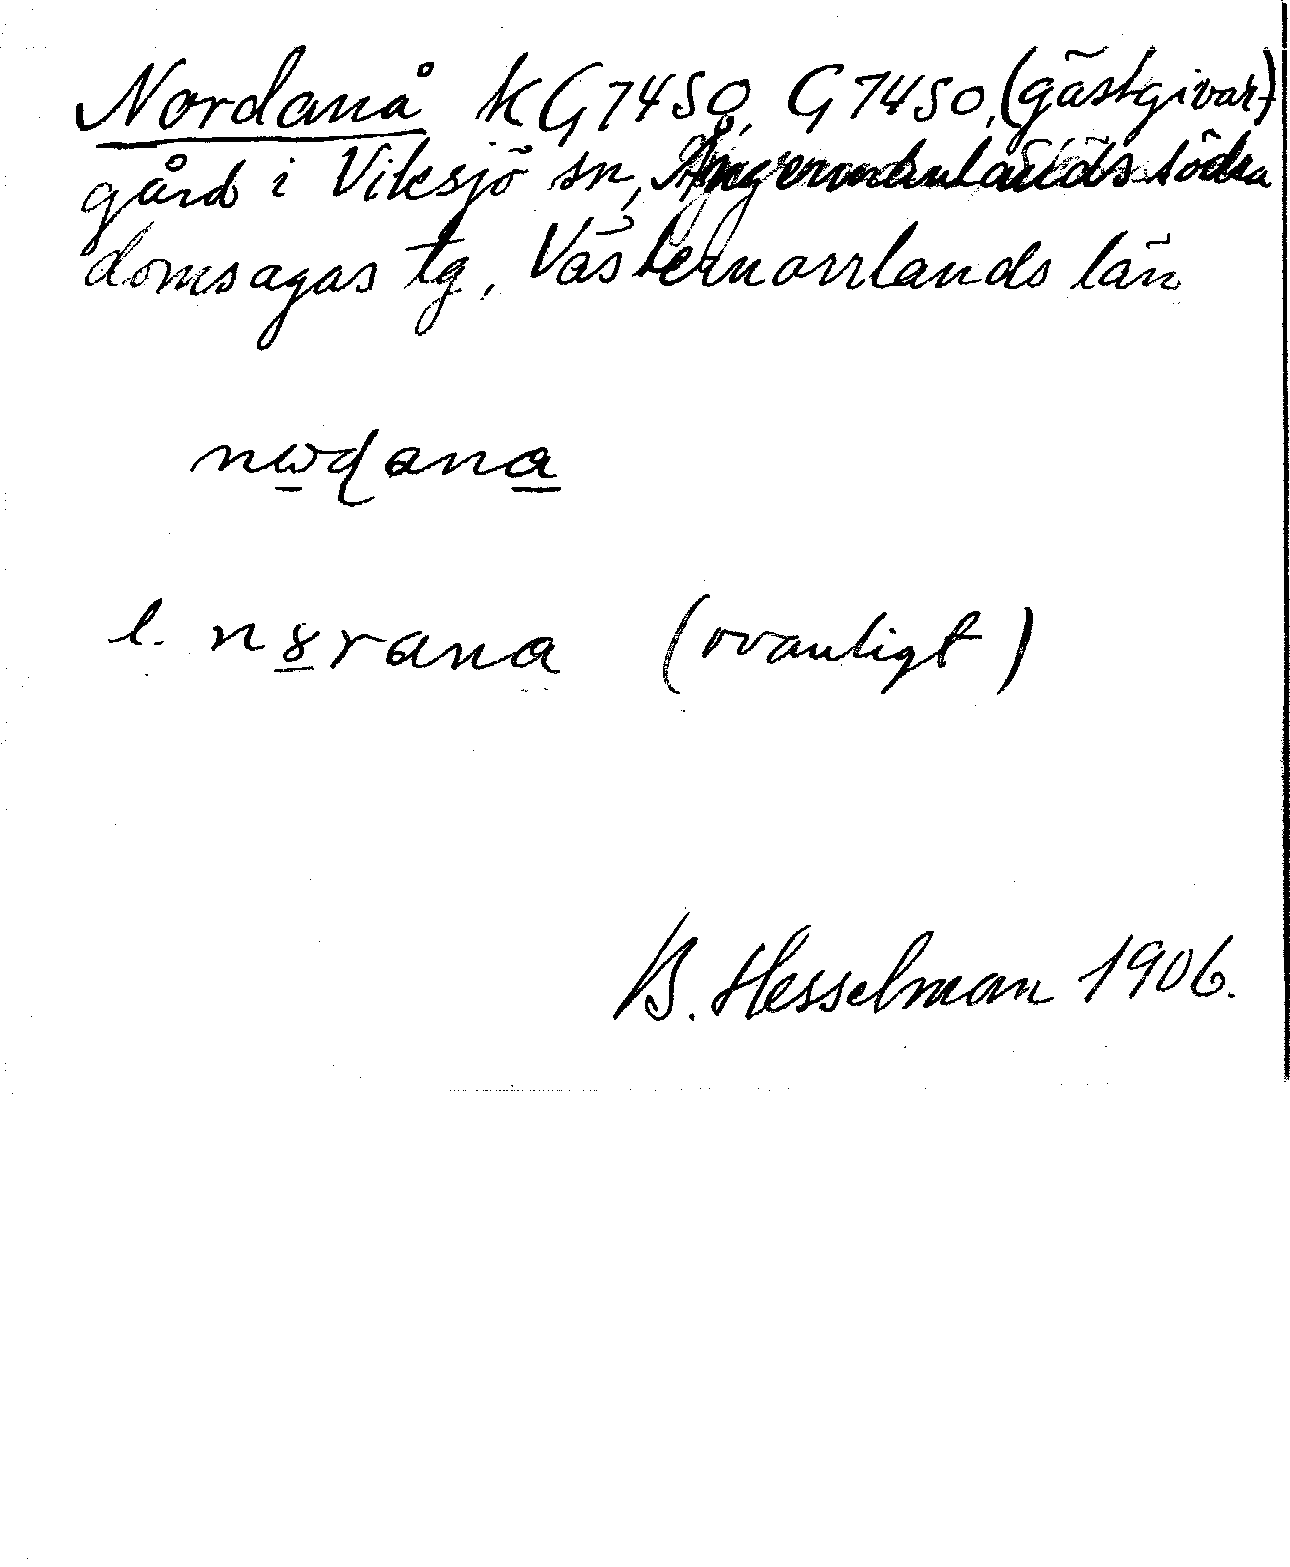 Nordanå KG7450, G7450, (gästgivar-)
gård i Viksjö sn, Ångermanlands södra
domsagas tg, Västernorrlands län
nɷɖana
l. n8rana (ovanligt)
B. Hesselman 1906.